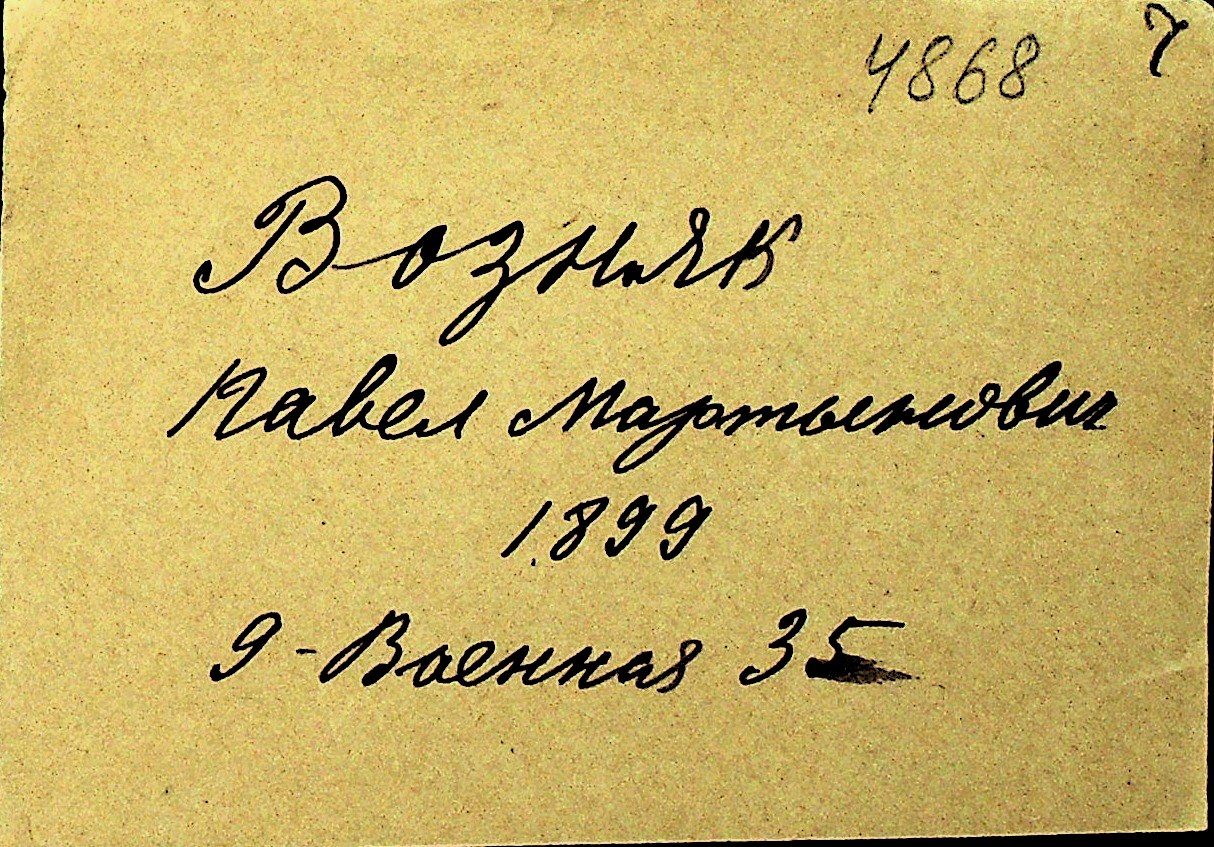 4868 7
Возняк
Павел Мартынович
1899
9-Военная 35